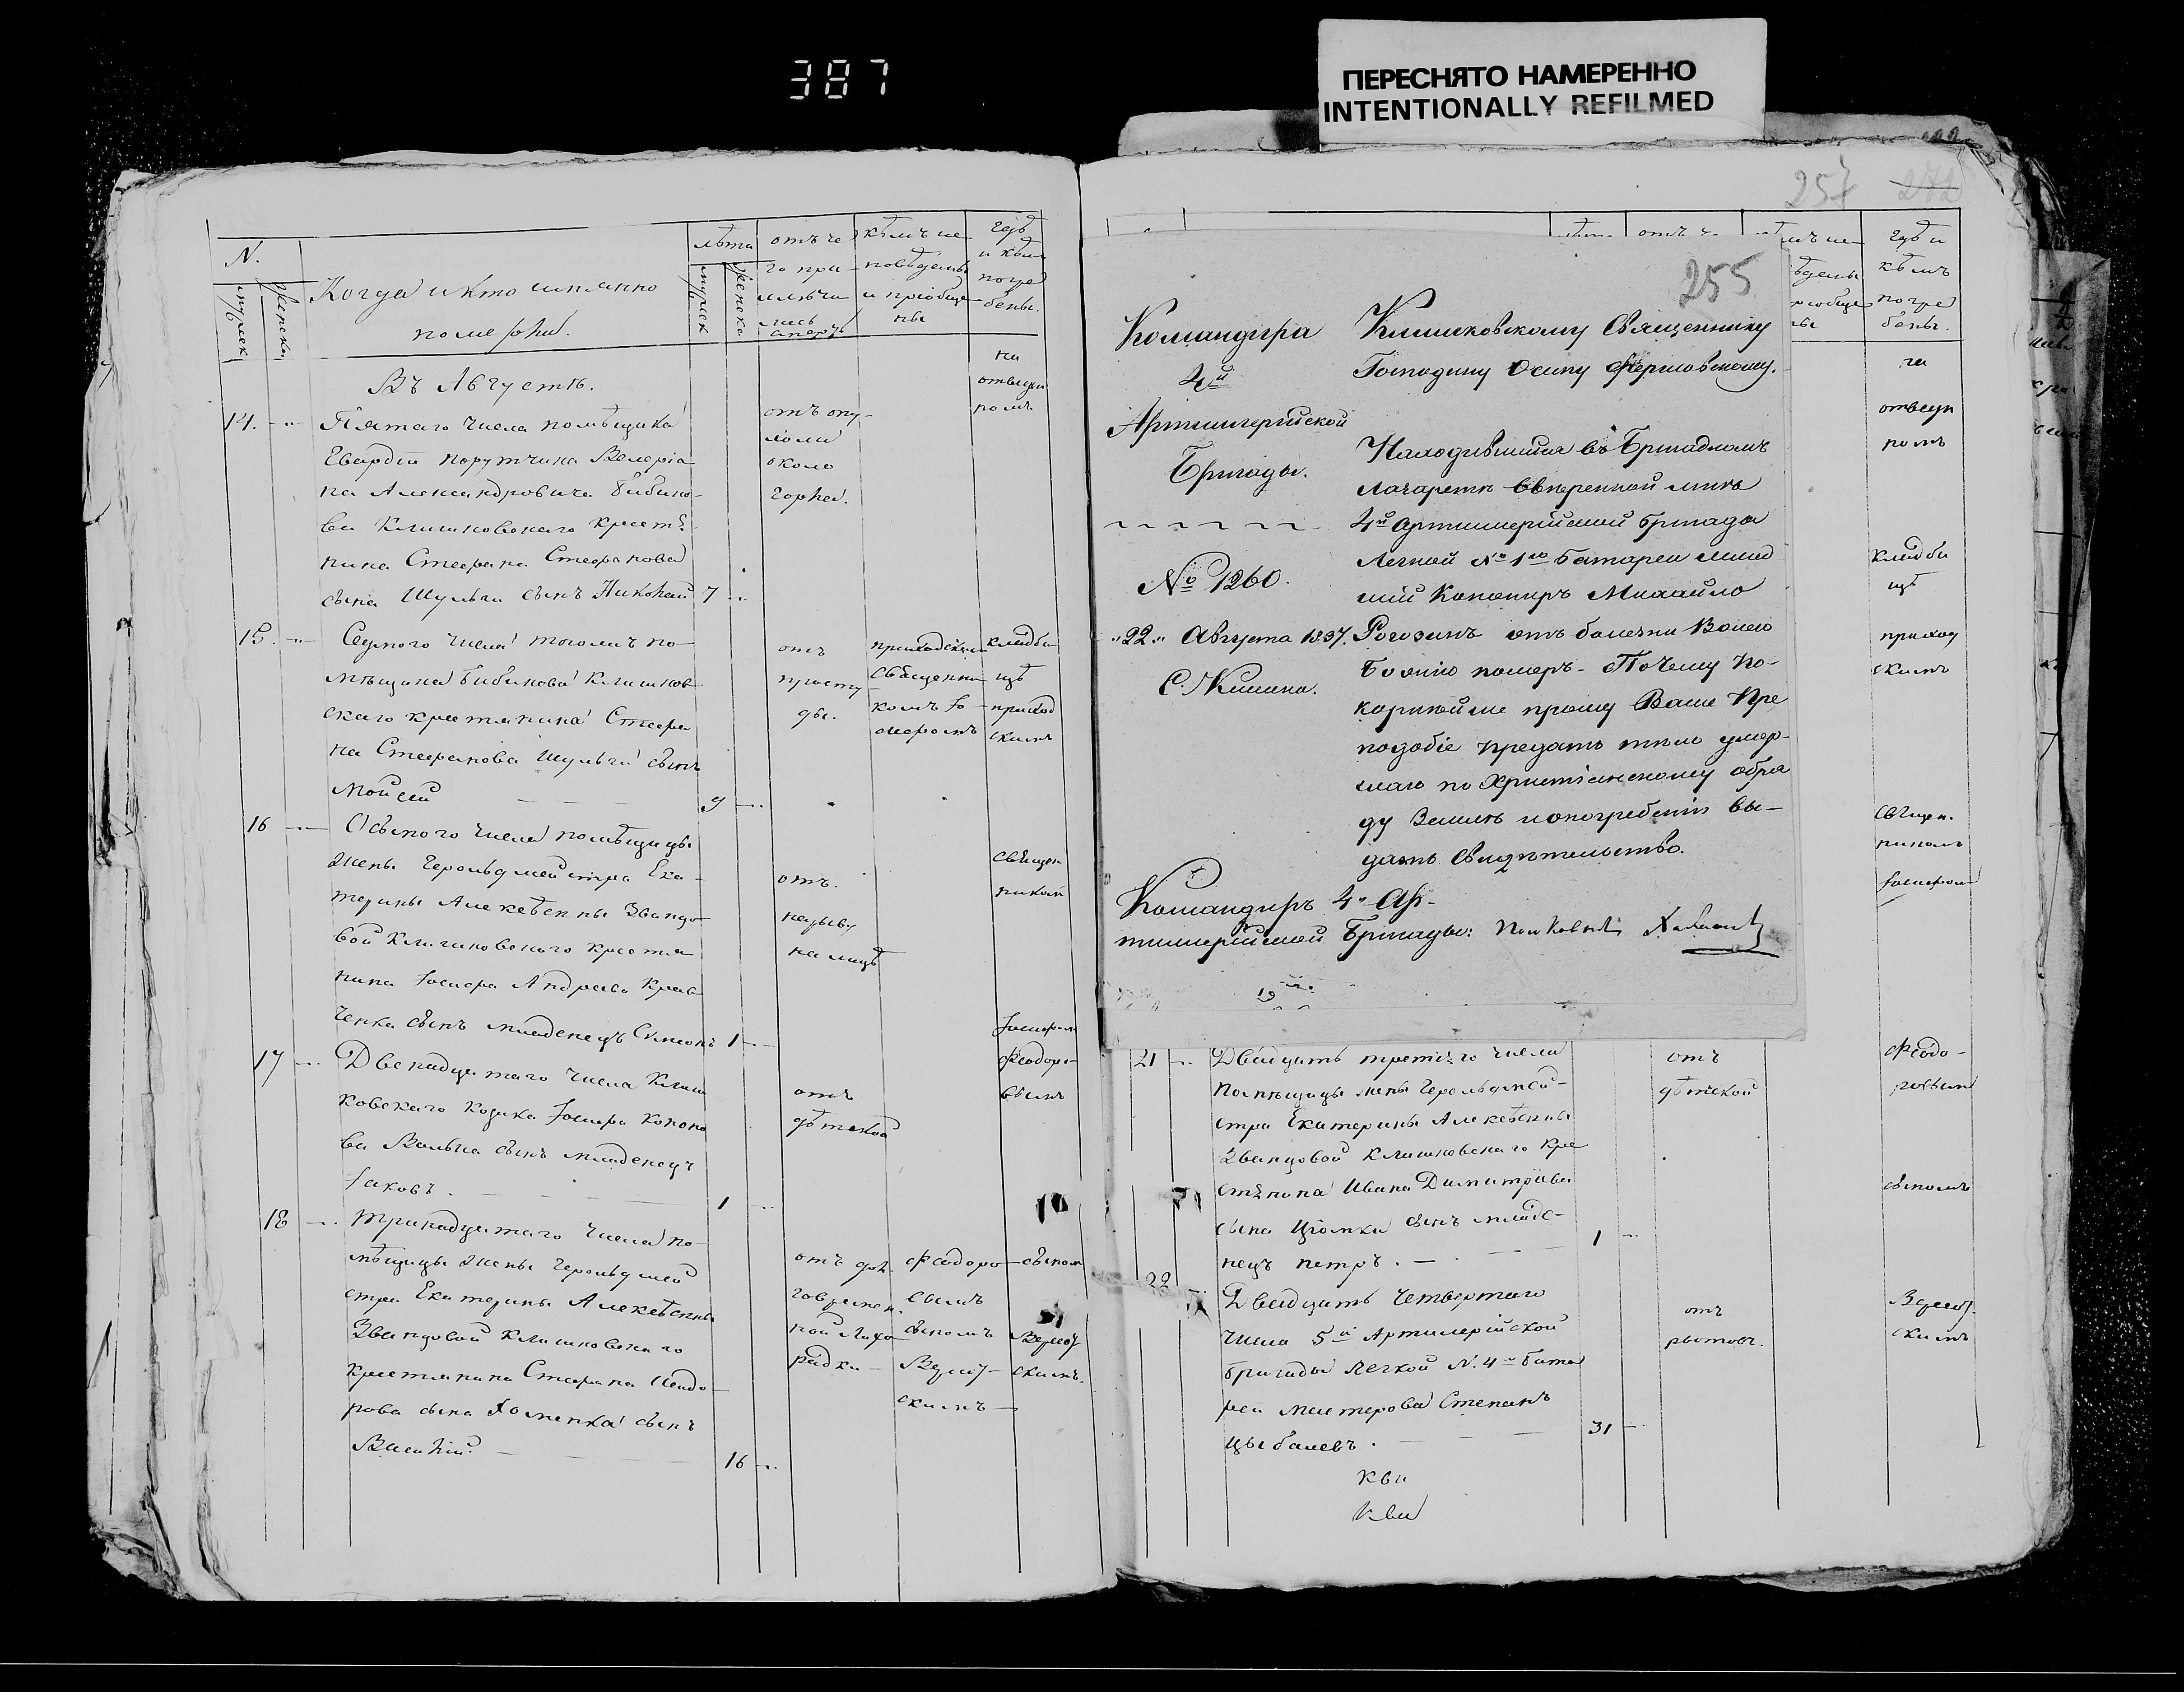 387
ПЕРЕСНЯТО НАМЕРЕННО
INTENTIONALLY REFILMED
N.
мужек
женска
Когда и кто имянно
померлъ.
лѣта
мужек
женска
отъ че
го при-
ключи
лась
смерть
кѣмъ ис
повѣданы
и пріобще
ны
Гдѣ
и кѣмъ
погре
бены.
Въ Августѣ.
на
отведен
номъ
14.
Пятаго числа помѣщика
Гвардіи порутчика Велеріа
на Александровича Бибико-
ва Клишковскаго крестя-
нина Стефана Стефанова
сына Шульги сынъ Николай 7
отъ опу-
холи
около
горла.
15.
Седмого числа тогожъ по-
мѣщика Бибикова Клишков-
скаго крестянина Стефа
на Стефанова Шульги сынъ
Мойсей 9
отъ
просту-
ды.
приходскимъ
священни
комъ Іо
сифомъ
кладби
щѣ
приход
скимъ
16
Осьмого числа помѣщицы
жены Герольдмейстра Ека-
терины Алексѣевны Званцо
вой Клишковскаго крестя
нина Іосифа Андреева Крав
ченка сынъ младенецъ Симеонъ 1
отъ
на лицѣ
священ
никомъ
Іосифом
17
Двенадцатаго числа Клиш
ковскаго козака Іосифа Конона
сынъ младенецъ
Іаковъ. 1
отъ
дѣтской
Феодоро-
вымъ
18
Тринадцатаго числа по-
мѣщицы жены Герольдмей
стра Екатерины Алексѣевны
Званцовой Клишковскаго
крестянина Стефана Исидо-
рова сына Хоменка сынъ
Василій 16
отъ дол
говремен
ной лихо
радки
Феодоро
вымъ
сыномъ
скимъ
сыном
скимъ.
257
272
Гдѣ и
кѣмъ
погре
бены.
на
отведен
номъ
кладби
щѣ
приход
скимъ
священ.
никомъ
Іосифом
Феодо-
ровым
сыномъ
скимъ
255
Командира
4й
Артиллерійской
Бригады.
№ 1260.
"22" Августа 1837.
С. Клишки.
Клишковскому Священнику
Господину Осипу Ѳерловскому.
Находившійся въ Бригадномъ
лазаретѣ ввѣренной мнѣ
4й Артиллерійской Бригады
Легкой № 1го Батареи млад
шій Канониръ Михайло
Рогозинъ отъ болезни Волею
Божіею померъ. Почему по-
корнѣйше прошу Ваше Пре
подобіе предать тѣло умер-
шаго по Христіанскому обря
ду Землѣ и о погребеніи вы-
дать Свидѣтельство.
Командиръ 4й Ар-
тиллерійской Бригады: Полковникъ
21
Двадцать третяго числа
помѣщицы жены Герольдмей-
стра Екатерины Алексѣевны
Званцовой Клишковскаго кре
стянина Ивана Димитріева
сына сынъ младе-
нецъ Петръ. 1
отъ
дѣтской
22
Двадцать четвертаго
числа 5й Артилерійской
бригады легкой N. 4й бата
реи мастеровой Степанъ
Цыбалевъ. 31
отъ
рвотовъ.